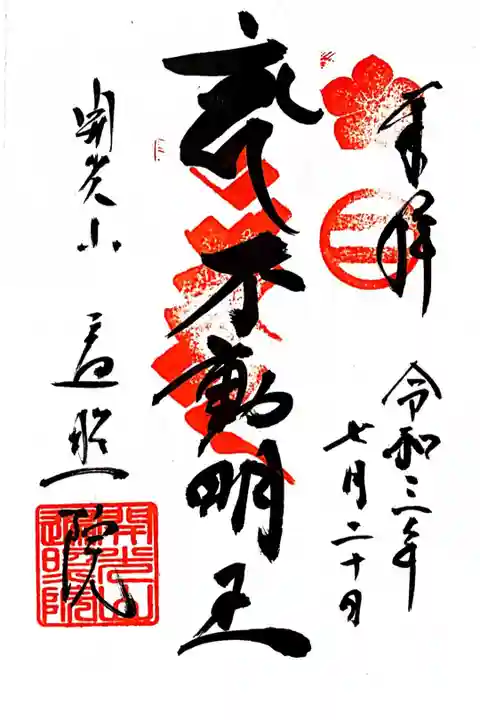 奉拝
令和三年
七月二十日
不動明王
開光山 遍照院
開光山
遍照院